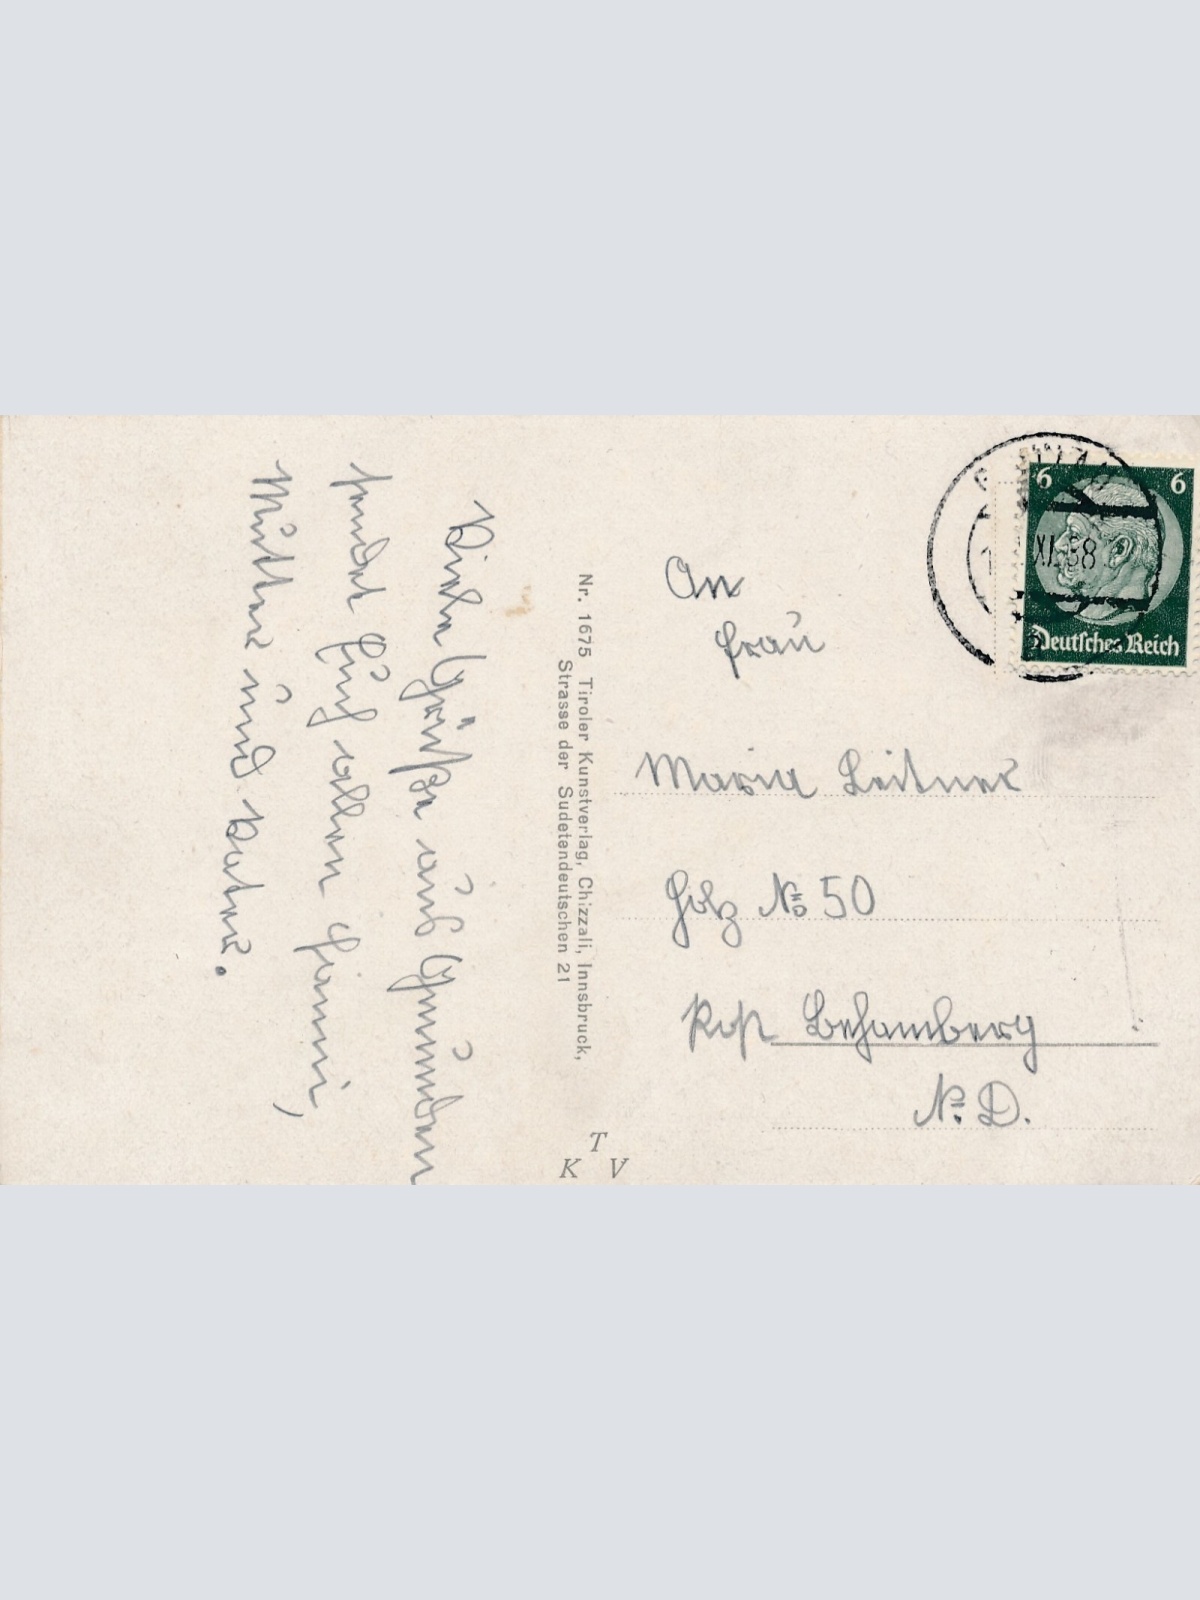 Viele Grüße aus Gmünden
sendet Euch allen Hanni,
Mutter und Vater.
Nr. 1675 Tiroler Kunstverlag, Chizzali, Innsbruck,
Strasse der Sudetendeutschen 21
T
K V
6 6
XI.38
Deutsches Reich
An
Frau
Maria Leitner
Holz No 50
Post Behamberg
N. D.